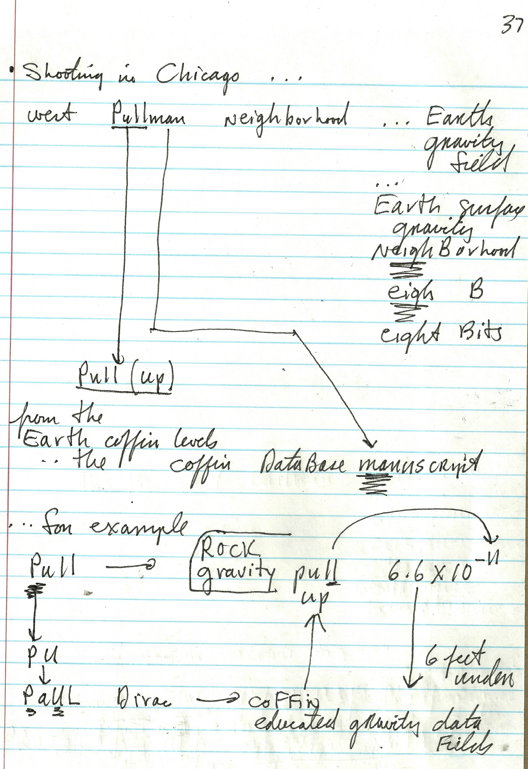 37
• Shooting in Chicago ...
west Pullman Neighborhood ... Earth
gravity
field
...
Earth surface
gravity
NeighBorhood
eigh B
eight Bits
Pull (up)
from the
Earth coffin levels
... the coffin DataBase manuscript
... for example
Pull → Rock
gravity pull
up 6.6 X 10⁻¹¹
PU
6 feet
under
PaUL Dirac → coffin
educated gravity data
Fields